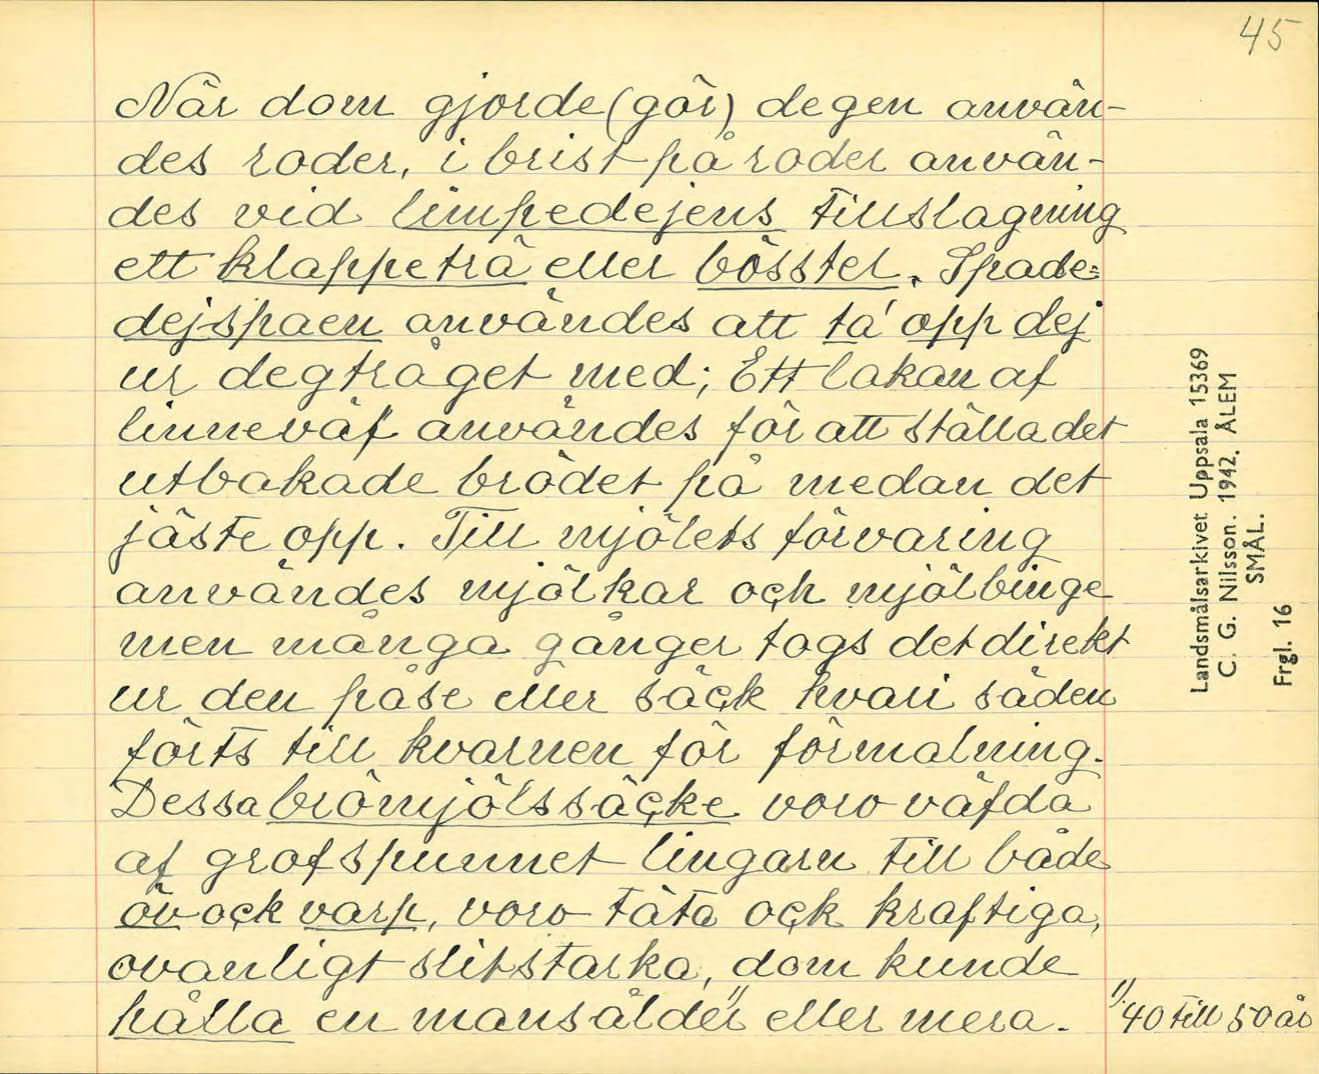 45
När dom gjorde (gör) degen använ-
des roder, i brist på roder använ-
des vid limpedejens tillslagning
ett klappeträ eller bösster. Spade=
dejspaen användes att ta' opp dej
ur degtråget med; Ett lakan af
linneväf användes för att ställa det
utbakade brödet på medan det
jäste opp. Till mjölets förvaring
användes mjölkar och mjölbinge
men många gånger togs det direkt
ur den påse eller säck hvari säden
förts till kvarnen för förmalning.
Dessa brömjölssäcke voro väfda
af grofspunnet lingarn till både
öv ock varp, voro täta ock kraftiga,
ovanligt slitstarka, dom kunde
hålla en mansålder 1) eller mera.
1). 40 till 50 år
Landsmålsarkivet Uppsala 15369
C. G. Nilsson. 1942. ÅLEM
SMÅL.
Frgl. 16